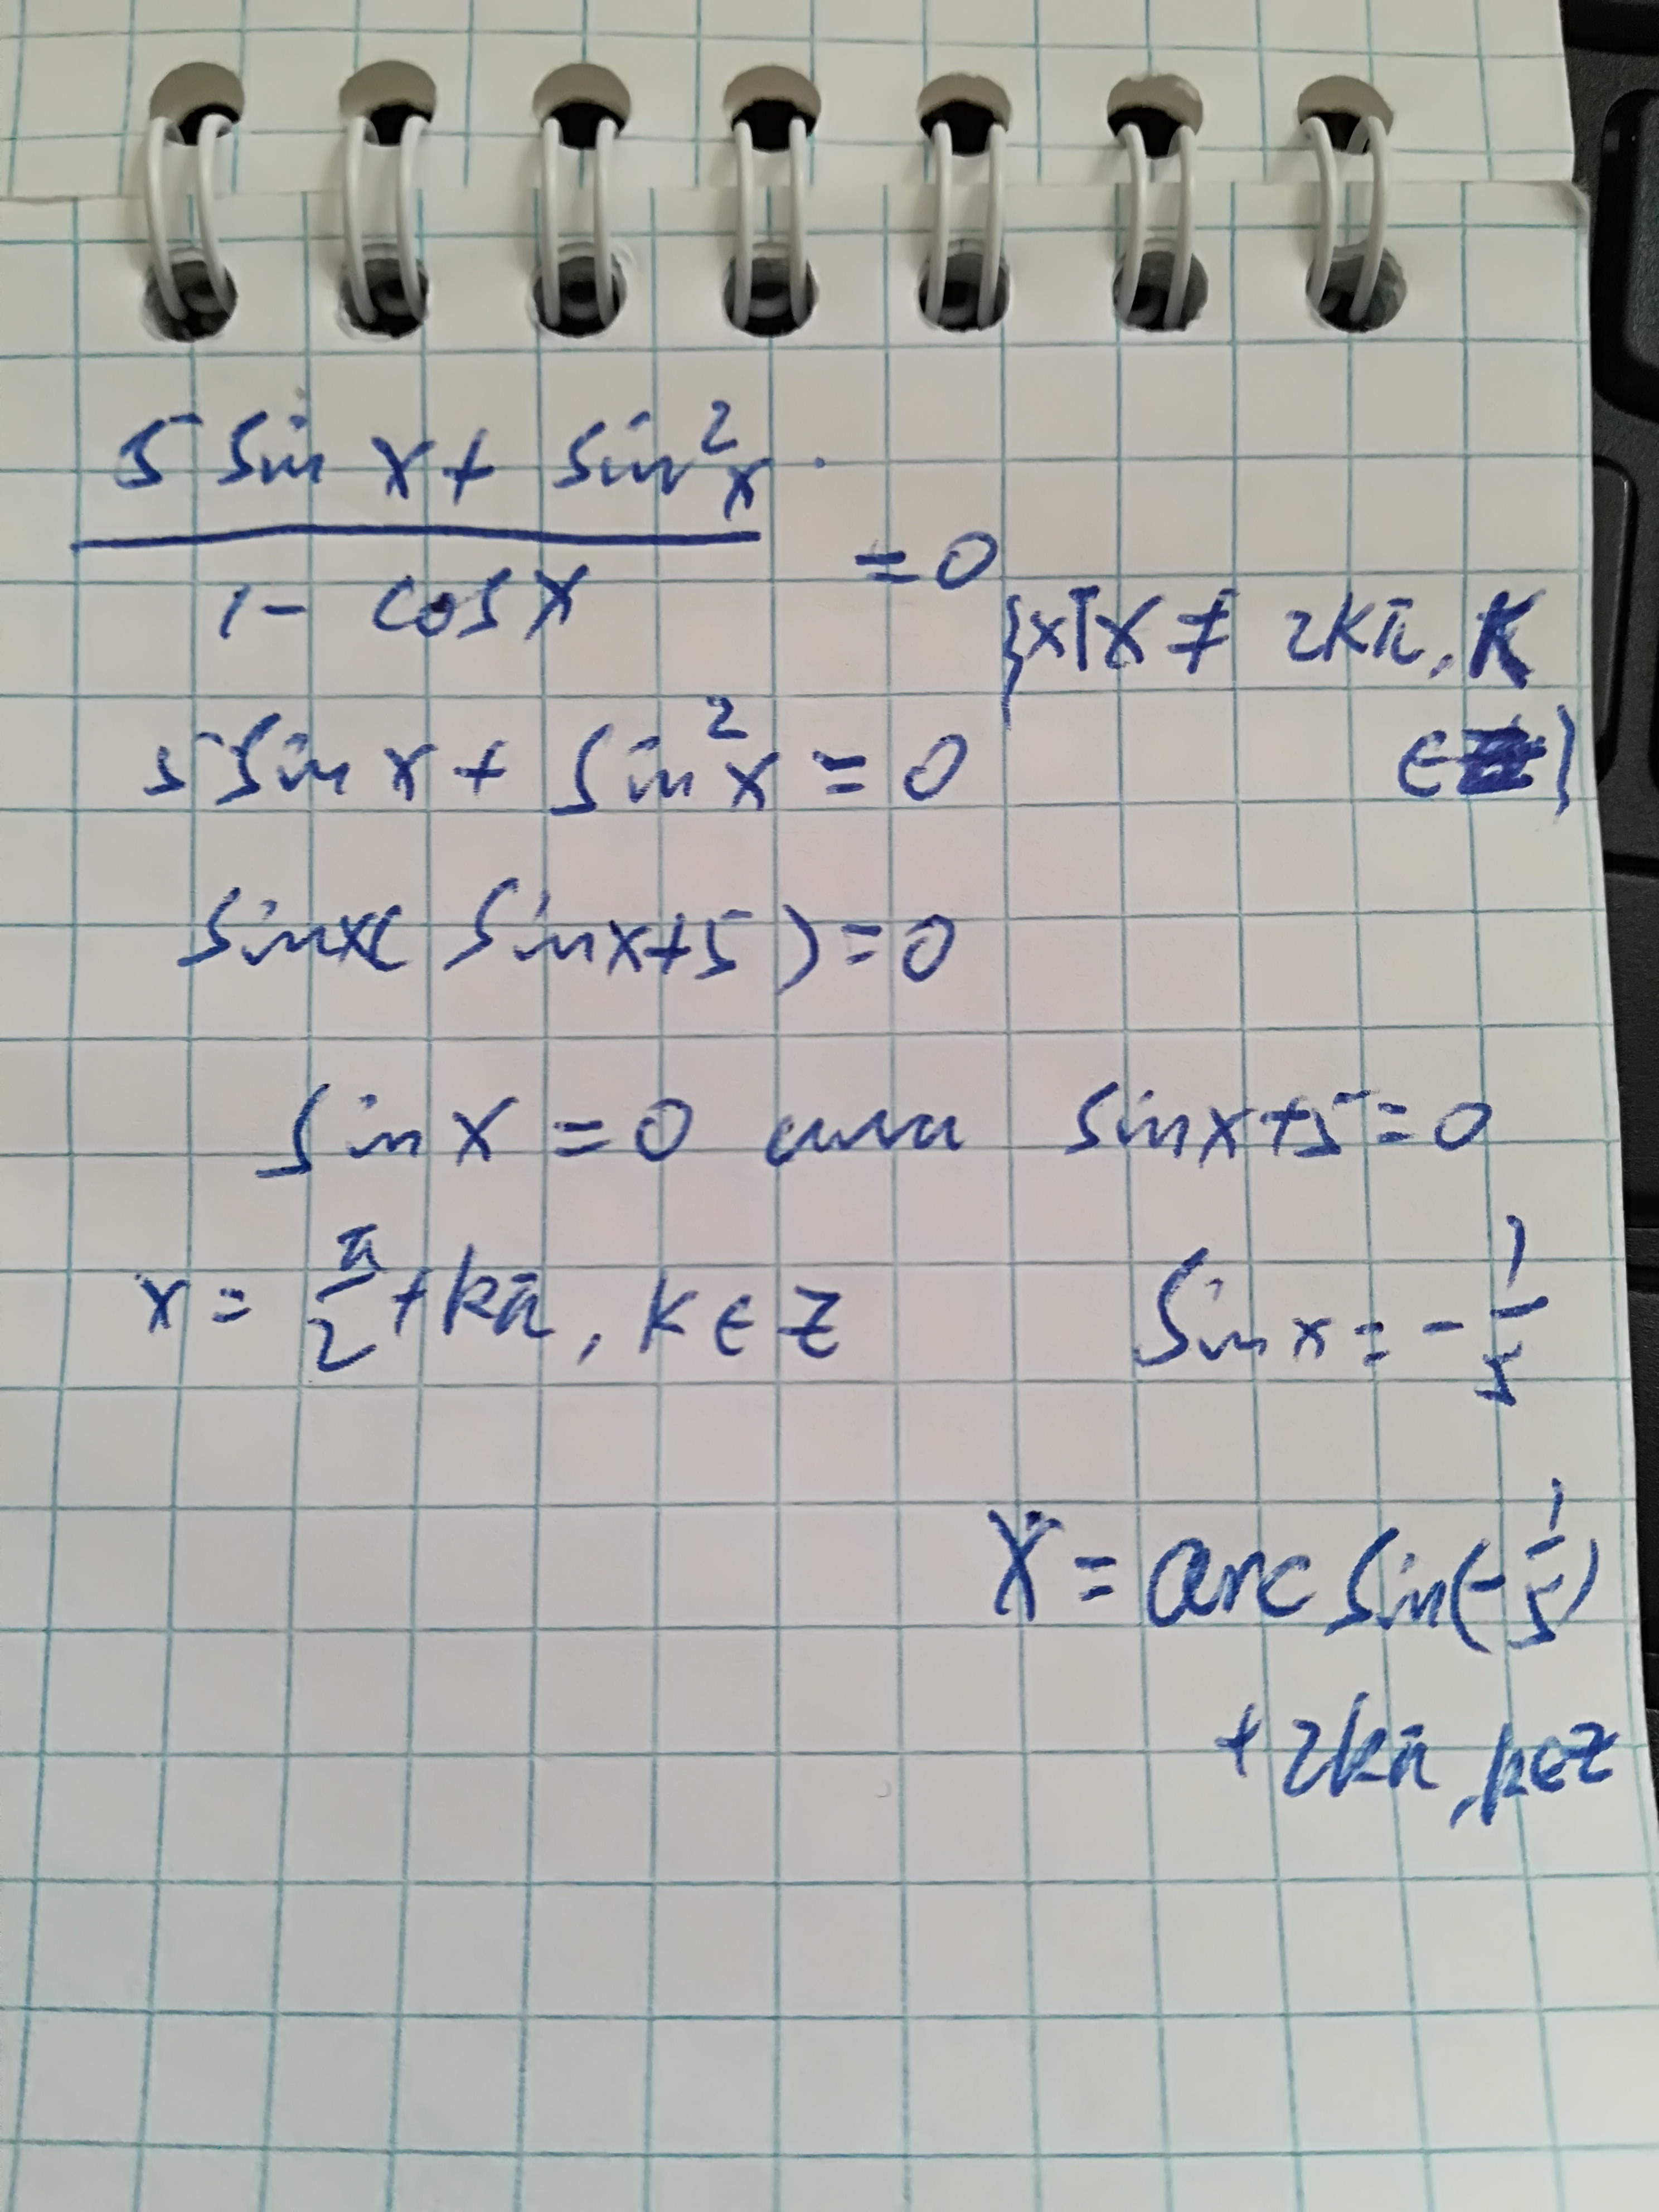 5 sin x + sin²x
―――――――― = 0
1 - cos x
{x|x ≠ 2kπ, k
∈ Z}
5 sin x + sin²x = 0
sin x( sin x+5 ) = 0
sin x = 0 или sin x+5 = 0
x = π/2 + kπ, k ∈ Z sin x = - 1/5
x = arc sin(- 1/5)
+ 2kπ, k∈Z